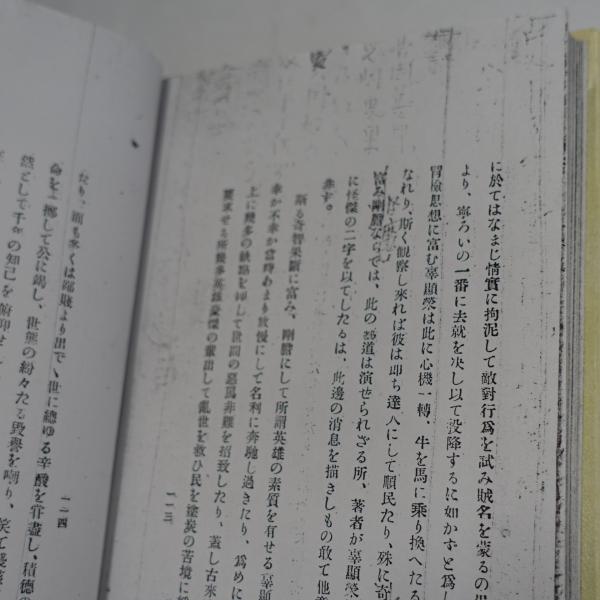 に於てはなまじ情實に拘泥して敵對行爲を試み賊名を蒙るの
より、寧ろいの一番に去就を決し以て投降するに如かずと爲し
冒險思想に富む辜顯榮は此に心機一轉、牛を馬に乘り換へたる
なれり、斯く觀察し來れば彼は即ち達人にして順民たり、殊に奇
富み剛膽ならでは、此の 道は演ぜられざる所、著者が辜顯榮
に怪傑の二字を以てしたるは、此邊の消息を描きしもの敢て他意
非す。
斯る奇智果斷に富み、剛膽にして所謂英雄の素質を有せる辜顯
幸か不幸か當時あまり放慢にして名利に奔馳し過ぎたり、爲めに
上に幾多の缺點を印して世間の惡罵非難を招致したり、蓋し古來
要求せる所幾多英雄豪傑の輩出して亂世を救ひ民を塗炭の苦境に
一一三
たり、而も多くは微賤より出で、世に總ゆる辛酸を甞盡し、積德の
命を一擲して公に竭し、世態の紛々たる毀譽を嘲り、笑て
然として千 の知己を俯仰せ
一一四